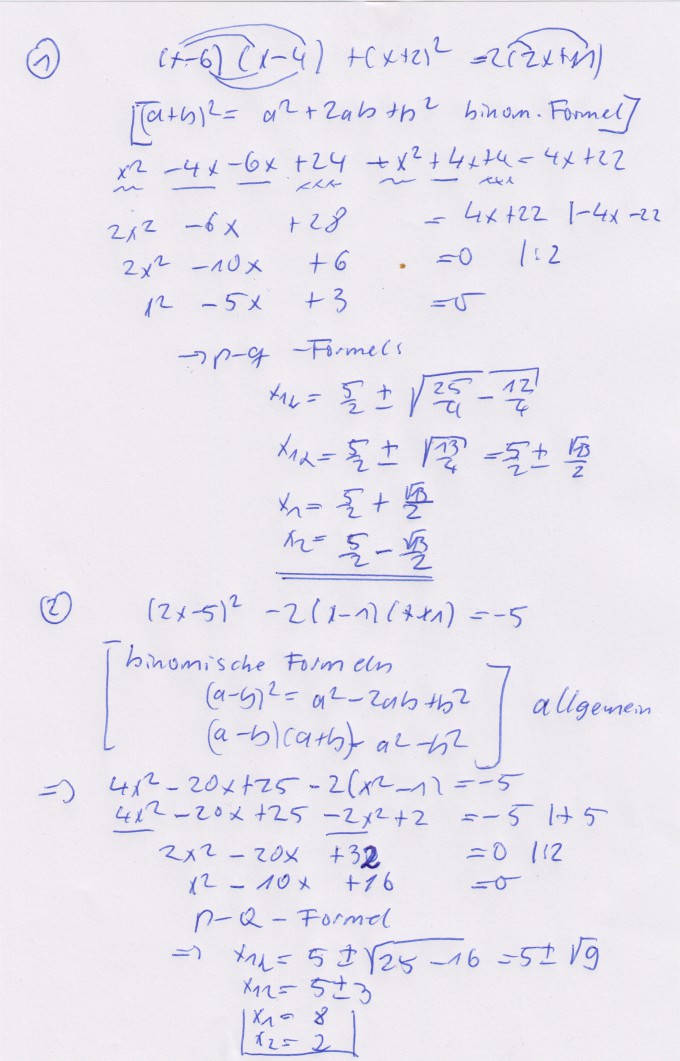 ① (x-6)(x-4) +(x+2)² =2(2x+11)
[(a+b)²= a²+2ab+b² binom. Formel]
x² -4x -6x +24 +x²+4x+4 = 4x+22
2x² -6x +28 = 4x+22 |-4x -22
2x² -10x +6 =0 |:2
x² -5x +3 =0
→ p-q -Formel:
x₁₂= 5/2 ± √(25/4 - 12/4)
x₁₂= 5/2 ± √(13/4) = 5/2 ± √13/2
x₁= 5/2 + √13/2
x₂= 5/2 - √13/2
② (2x-5)² -2(x-1)(x+1) =-5
[binomische Formeln
(a-b)²= a²-2ab+b²
(a-b)(a+b)= a²-b²] allgemein
=> 4x²-20x+25 -2(x²-1) =-5
4x² -20x+25 -2x²+2 =-5 |+5
2x² -20x +32 =0 |:2
x² -10x +16 =0
p-Q-Formel
=> x₁₂= 5 ± √(25-16) =5± √9
x₁₂= 5±3
x₁= 8
x₂= 2